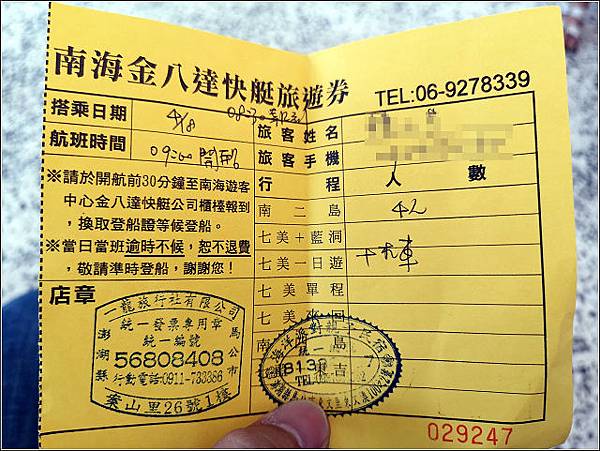 南海金八達快艇旅遊券
TEL:06-9278339
搭乘日期
4/8
航班時間
09:00 開船
※請於開航前30分鐘至南海遊客
中心金八達快艇公司櫃檯報到
，換取登船證等候登船。
※當日當班逾時不候，恕不退費
，敬請準時登船，謝謝您！
店章
一龍旅行社有限公司
統一發票專用章
統一編號
澎湖縣
馬公市
56808408
行動電話:0911-733386
案山里26號1樓
旅客姓名
旅客手機
行程
人數
南二島
4人
七美+藍洞
七美一日遊
+汽車
七美單程
029247